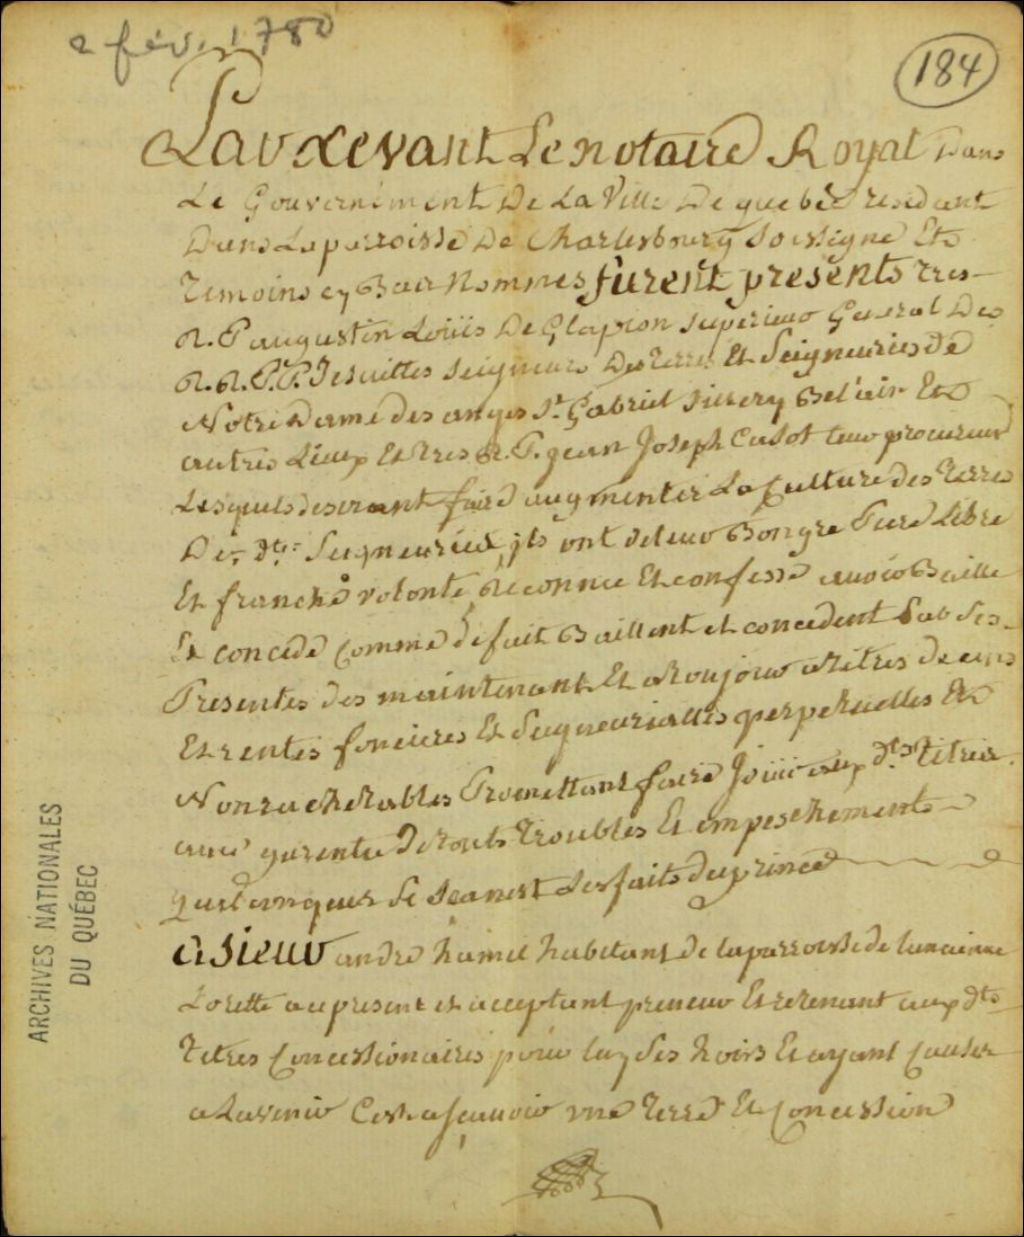 2 fév. 1780
184
Pardevant Le notaire Royal Dans
Le Gouvernement De La Ville De quebec residant
Dans La parroisse De Charlesbourg Soussigné Et
Temoins cy Bas Nommés furent presents Tres
R. P augustin Loüis De Glapion superieur General Des
R.R.P.P. Jesuittes seigneurs Des Terres Et Seigneuries de
Notre Dame des anges St. Gabriel sillery Bel'air Et
autres Lieux Et Tres R. P. Jean Joseph Casot leur procureur
Lesquels desirant faire augmenter La Culture des Terres
De. dtes Seigneuries, ils ont de leur Bongré Pure Libre
Et franche volonté Reconnu Et confessé avoir Baillé
Et concedé comme de fait Baillent et concedent Par Ses
Presentes des maintenant Et a Toujour a titres de cens
Et rentes foncieres Et Seigneurialles perpetuelles Et
Non rachetables Promettant faire Joüir aux dts Titres
avec garentie De touts Troubles Et empeschements
quelconques Se Seanest Les faits du prince
a sieur andré hamel habitant de la parroisse de lancienne
Lorette au present et acceptant preneur Et retenant aux dts
Titres Concessionaires pour luy Ses hoirs Et ayant Causes
a Lavenir Cest a scauoir une Terre Et Concession
ARCHIVES NATIONALES
DU QUÉBEC